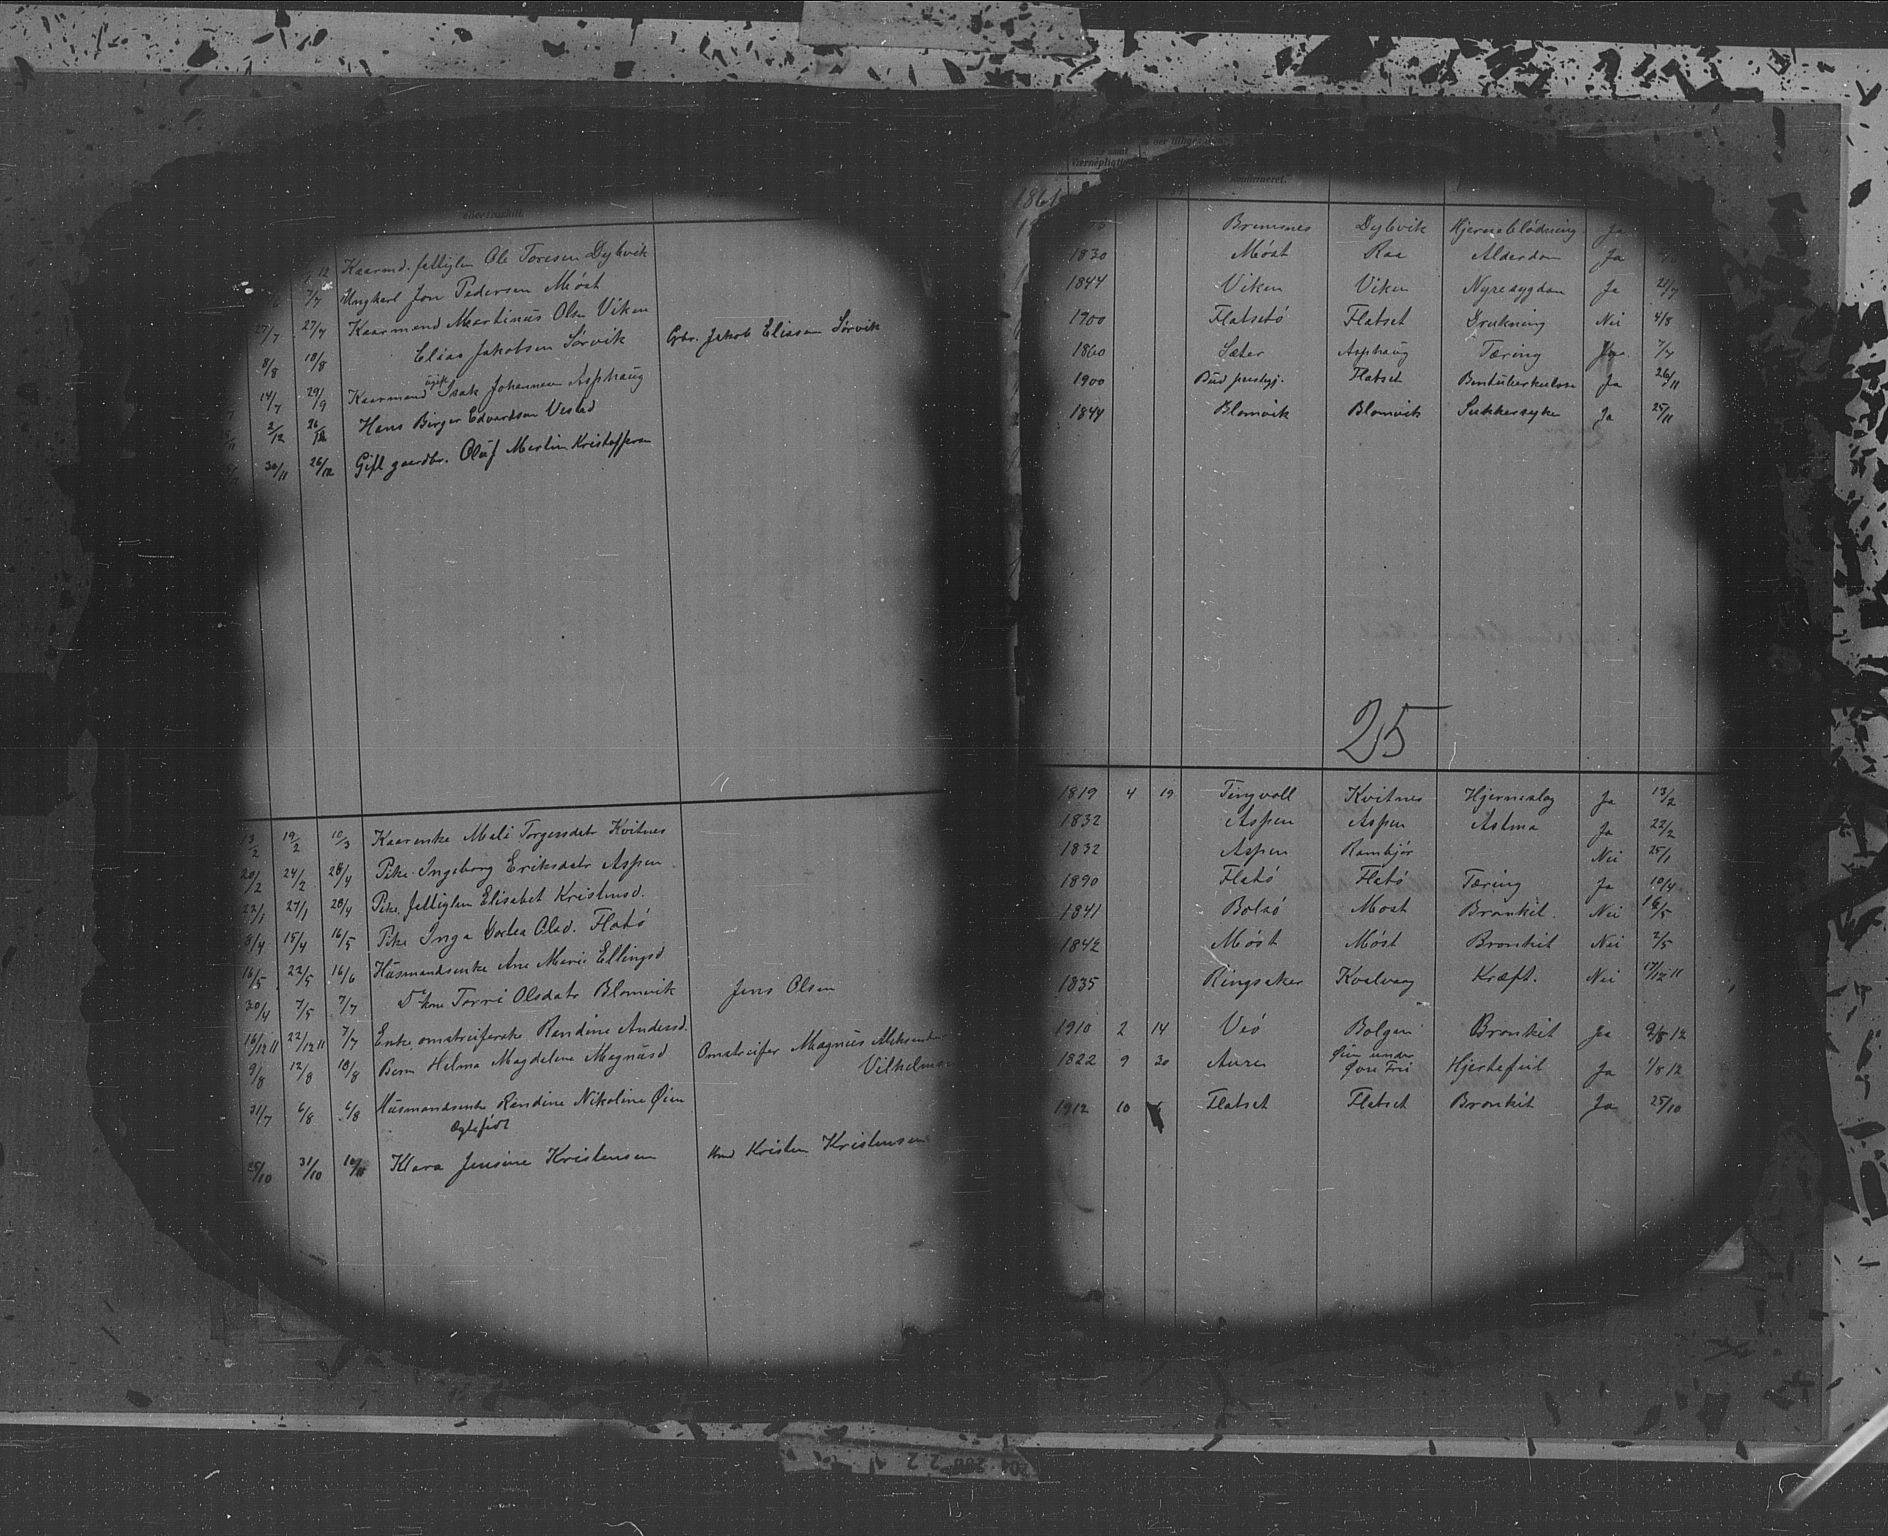 eller fraskilt.
12 Kaarmd. fattiglem Ole Toresen Dybvik
7/7 Ungkarl Jon Pedersen Möst
27/7 27/7 Kaarmand Martinus Olsen Viken
8/8 18/8 Elias Jakobsen Sörvik Gbr. Jakob Eliasen Sörvik
14/7 29/9 Kaarmand ugift Isak Johannesen Asphaug
2/12 26/12 Hans Birger Edvardsen Vestad
30/11 26/12 Gift gaardbr. Oluf Martin Kristoffersen
13/2 19/2 10/3 Kaarenke Mali Torgersdatr Kvitnes
20/2 24/2 28/4 Pike Ingeborg Eriksdatr Aspen
22/1 27/1 28/4 Pike, fattiglem Elisabet Kristensd.
8/4 15/4 16/5 Pike Inga Olad. Flatö
16/5 22/5 16/6 Husmandsenke Ane Marie Ellingsd
30/4 7/5 7/7 Do kone Torri Olsdatr Blomvik Jens Olsen
16/12 11 22/12 11 7/7 Enke omstreiferske Randine Andersd.
9/8 12/8 18/8 Barn Helma Magdalene Magnusd Omstreifer Magnus Aleksander
Vilhelmsen
31/7 6/8 6/8 Husmandsenke Randine Nikoline Øien
Ægtefödt
25/10 31/10 10/11 Klara Jensine Kristensen Kristen Kristensen
Værnepligtig
1861
Bremsnes Dybvik Hjerneblödning Ja
1830 Möst Raa Alderdom Ja
1844 Viken Viken Nyresygdom Ja 21/7
1900 Flatsetö Flatset Drukning Nei 4/8
1860 Sæter Asphaug Tæring 7/7
1900 Bud prestgj. Flatset Bentuberkulose Ja 26/11
1844 Blomvik Blomvik Sukkersyke Ja 25/11
25
1819 4 19 Tingvoll Kvitnes Hjerneslag Ja 13/2
1832 Aspen Aspen Astma Ja 22/2
1832 Aspen Rambjör Nei 25/1
1890 Flatö Flatö Tæring Ja 10/4
1841 Bolsö Möst Bronkit. Nei 18/5
1842 Möst Möst Bronkit Nei 2/5
1835 Ringsaker Kvalvaag Kræft. Nei 17/12 11
1910 2 14 Veö Bolgen Bronkit Ja 9/8 12
1822 9 30 Aure Øien under Øvre Fri Hjertefeil Ja 1/8 12
1912 10 Flatset Flatset Bronkit Ja 25/10